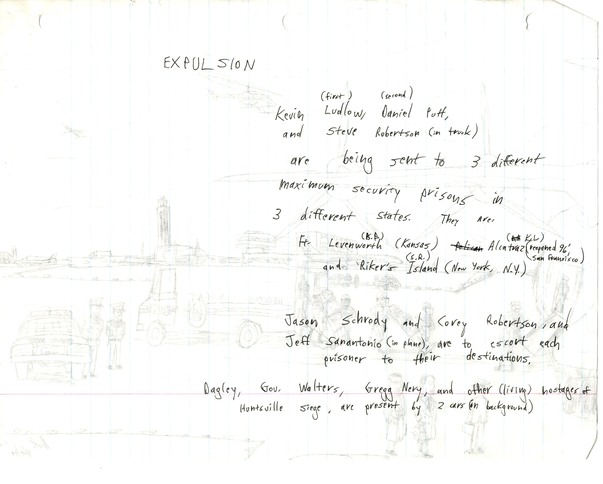 EXPULSION
(first) (second)
Kevin Ludlow, Daniel Putt,
and Steve Robertson (in truck)
are being sent to 3 different
maximum security prisons in
3 different states. They are:
Ft. Levenworth (Kansas) Alcatraz (reopened 96', San Francisco)
and Riker's Island (New York, N.Y.)
Jason Schrody and Corey Robertson, and
Jeff Sanantonio (in plane), are to escort each
prisoner to their destinations.
Dagley, Gov. Walters, Gregg Nery, and other (living) hostages of
Huntsville siege, are present by 2 cars (in background)